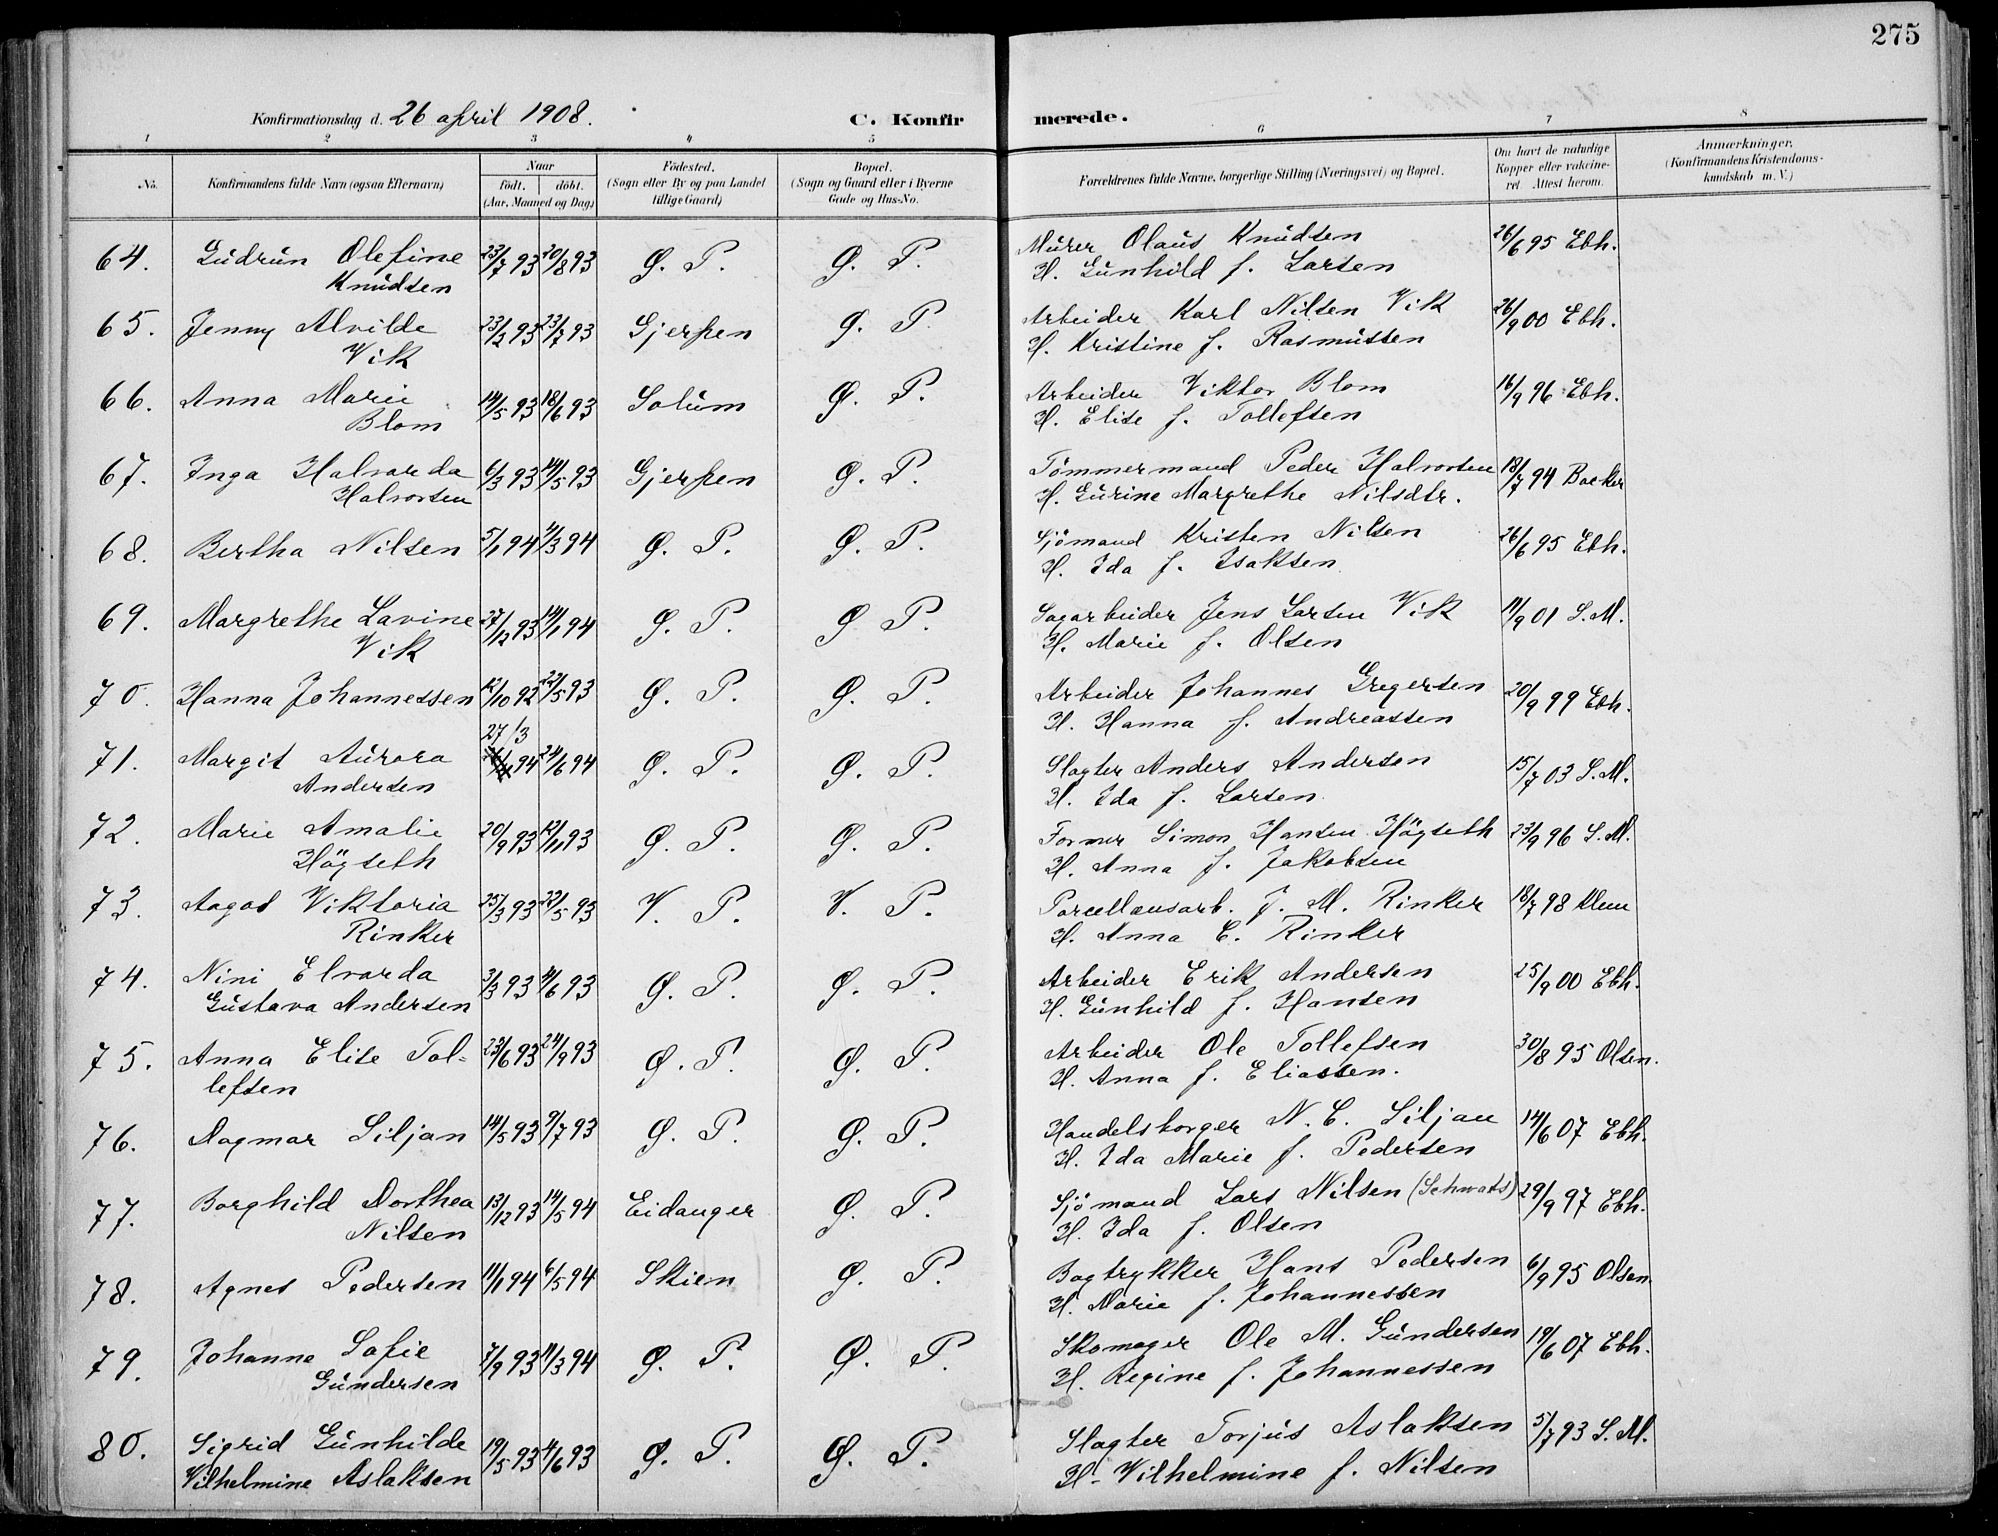 275
Konfirmationsdag d. 26 april 1908. C. Konfirmerede.
1 2 3 4 5 6 7 8
No. Konfirmandens fulde Navn (ogsaa Efternavn) Naar födt. döbt. (Aar, Maaned og Dag) Födested. (Sogn eller By og paa Landet tillige Gaard) Bopæl. (Sogn og Gaard eller i Byerne Gade og Hus-No. Forældrenes fulde Navne, borgerlige Stilling (Næringsvei) og Bopæl. Om havt de naturlige Kopper eller vakcineret. Attest herom. Anmærkninger. (Konfirmandens Kristendomskundskab m. V.)
64. Gudrun Olefine 23/7 93 20/8 93 Ø. P. Ø. P. Murer Olaus Knudsen 26/6 95 Ebh.
Knudsen H. Gunhild f. Larsen
65. Jenny Alvilde 23/2 93 23/7 93 Gjerpen Ø. P. Arbeider Karl Nilsen Vik 26/9 00 Ebh.
Vik H. Kristine f. Rasmussen
66. Anna Marie 14/5 93 18/6 93 Solum Ø. P. Arbeider Viktor Blom 16/9 96 Ebh.
Blom H. Elise f. Tollefsen
67. Inga Halvarda 6/3 93 14/5 93 Gjerpen Ø. P. Tömmermand Peder Halvorsen 18/7 94 Backer
Halvorsen H. Gurine Margrethe Nilsdtr.
68. Bertha Nilsen 5/1 94 4/3 94 Ø. P. Ø. P. Sjömand Kristen Nilsen 26/6 95 Ebh.
H. Ida f. Isaksen
69. Margrethe Lavine 27/12 93 14/1 94 Ø. P. Ø P. Sagarbeider Jens Larsen Vik 11/9 01 S. M.
Vik H. Marie f. Olsen
70. Hanna Johannessen 12/10 92 22/5 93 Ø. P. Ø. P. Arbeider Johannes Gregersen 20/9 99 Ebh.
H. Hanna f. Andreassen
27/3
71. Margit Aurora 94 24/6 94 Ø. P. Ø. P. Slagter Anders Andersen 15/7 03 S. M.
Andersen H. Ida f. Larsen.
72. Marie Amalie 20/9 93 12/11 93 Ø. P. Ø. P. Former Simon Hansen Högseth 23/9 96 S. M.
Högseth H. Anna f. Jakobsen
73. Aagot Viktoria 25/3 93 22/5 93 V. P. V. P. Porcellænsarb. J. M. Rinker 18/7 98 Klem
Rinker H. Anna C. Rinker
74. Nini Elvarda 3/3 93 4/6 93 Ø. P. Ø. P. Arbeider Erik Andersen 25/9 00 Ebh.
Gustava Andersen H. Gunhild f. Hansen
75. Anna Elise Tol- 23/6 93 24/9 93 Ø. P. Ø. P. Arbeider Ole Tollefsen 30/8 95 Olsen.
lefsen H. Anna f. Eliassen.
76. Dagmar Siljan 14/5 93 9/7 93 Ø. P. Ø. P. Handelsborger N. C. Siljan 14/6 07 Ebh.
H. Ida Marie f. Pedersen
77. Borghild Dorthea 13/12 93 14/5 94 Eidanger Ø. P. Sjömand Lars Nilsen (Schwats) 29/9 97 Ebh.
Nilsen H. Ida f. Olsen
78. Agnes Pedersen 11/1 94 6/5 94 Skien Ø. P. Bogtrykker Hans Pedersen 6/9 95 Olsen.
H. Marie f. Johannessen
79. Johanne Sofie 7/9 93 11/3 94 Ø. P. Ø. P. Skomager Ole M. Gundersen 19/6 07 Ebh.
Gundersen H. Regine f. Johannessen
80. Sigrid Gunhilde 19/5 93 4/6 93 Ø. P. Ø. P. Slagter Torjus Aslaksen 5/7 93 S. M.
Vilhelmine Aslaksen H. Vilhelmine f. Nilsen